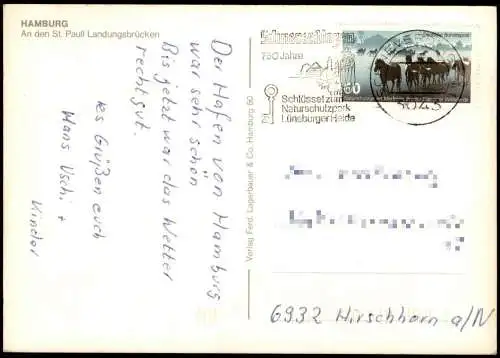 HAMBURG
An den St. Pauli Landungsbrücken
Der Hafen von Hamburg
war sehr schön
Bis jetzt war das Wetter
recht gut.
es Grüßen euch
Hans Uschi +
Kinder
Verlag Ferd. Lagerbauer & Co. Hamburg 50
Schneverdingen
750 Jahre
Schlüssel zum
Naturschutzpark
Lüneburger Heide
Deutsche Bundespost
60
3043
6932 Hirschhorn a/N